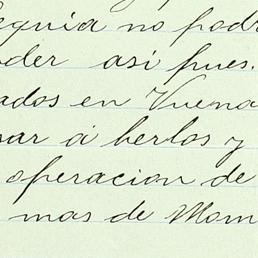 seguia no podr
der asi pues.
ados en Vuena
sar á berlos y
operacion de
mas de Mom